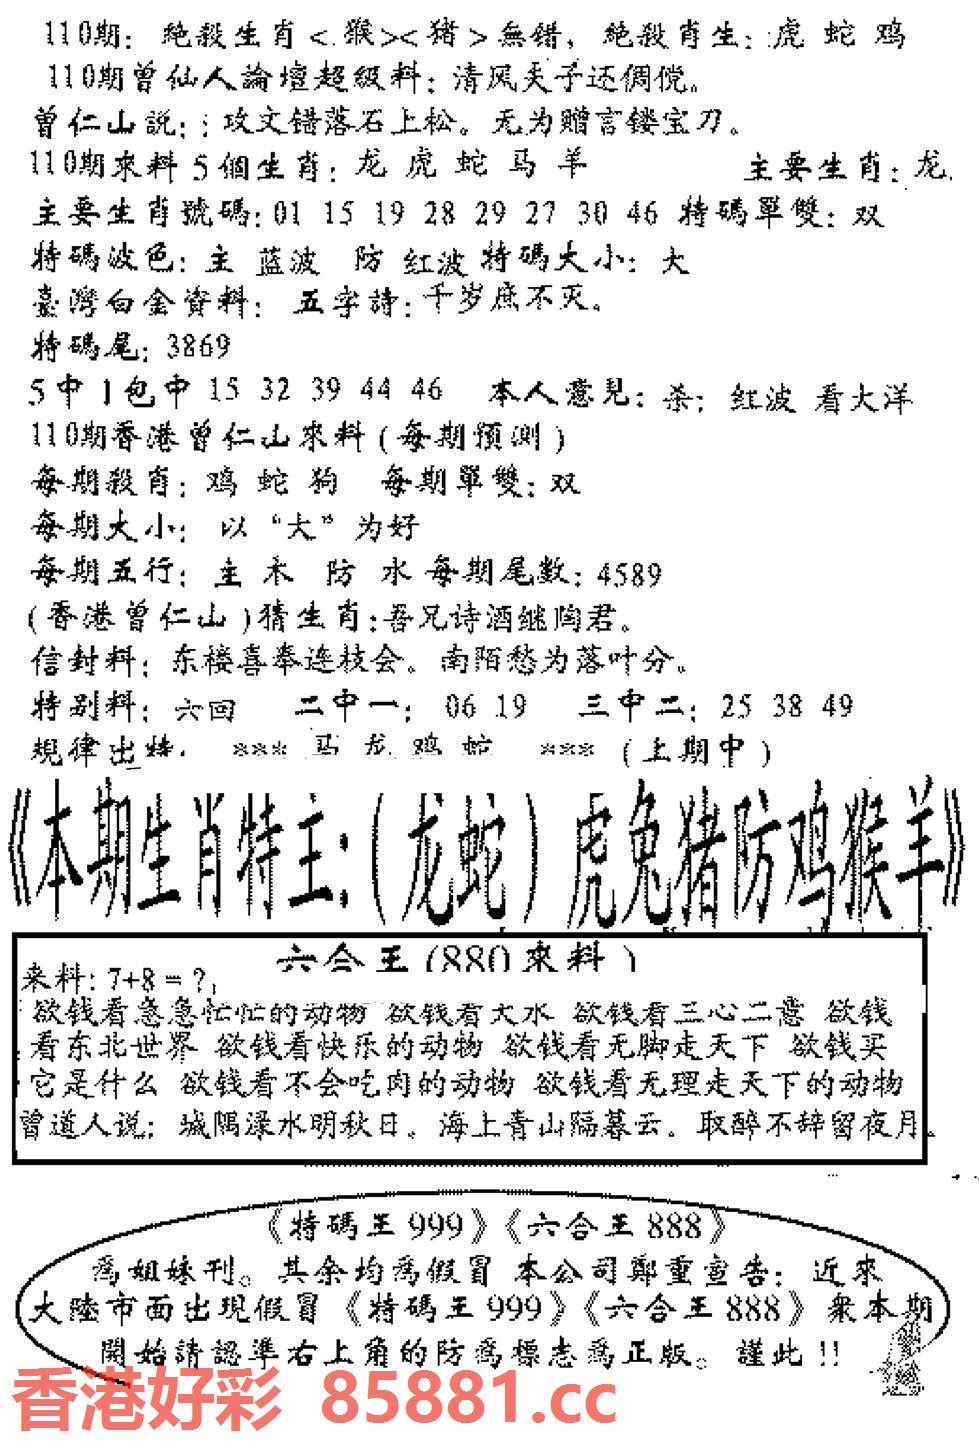 110期：绝殺生肖<.猴><猪>無错，绝殺肖生：虎 蛇 鸡
110期曾仙人論壇超級料：清风夫子还倜傥。
曾仁山説：；攻文错落石上松。无为赠言镂宝刀。
110期來料5個生肖：龙 虎 蛇 马 羊 主要生肖：龙.
主要生肖號碼：01 15 19 28 29 27 30 46 特碼單雙：双
特碼波色：主 蓝波 防 红波 特碼大小：大
臺灣白金資料： 五字詩：千岁庶不灭。
特碼尾：3869
5中1包中 15 32 39 44 46 本人意見：杀：红波 看大洋
110期香港曾仁山來料(每期預測)
每期殺肖：鸡 蛇 狗 每期單雙：双
每期大小： 以“大”为好
每期五行：主 木 防 水 每期尾數：4589
(香港曾仁山)猜生肖：吾兄诗酒继陶君。
信封料：东楼喜奉连枝会。南陌愁为落叶分。
特别料：六回 二中一： 06 19 三中二：25 38 49
規律出特： *** 马 龙 鸡 蛇 *** (上期中)
《本期生肖特主：(龙蛇)虎兔猪防鸡猴羊》
六合王(880來料)
来料：7+8=?，
欲钱看急急忙忙的动物 欲钱看大水 欲钱看三心二意 欲钱
看东北世界 欲钱看快乐的动物 欲钱看无脚走天下 欲钱买
它是什么 欲钱看不会吃肉的动物 欲钱看无理走天下的动物
曾道人说：城隅渌水明秋日。海上青山隔暮云。取醉不辞留夜月。
《特碼王999》《六合王888》
為姐妹刊。其余均為假冒 本公司鄭重宣告：近來
大陸市面出現假冒《特碼王999》《六合王888》衆本期
開始請認準右上角的防為標志為正版。謹此!!
香港好彩 85881.cc